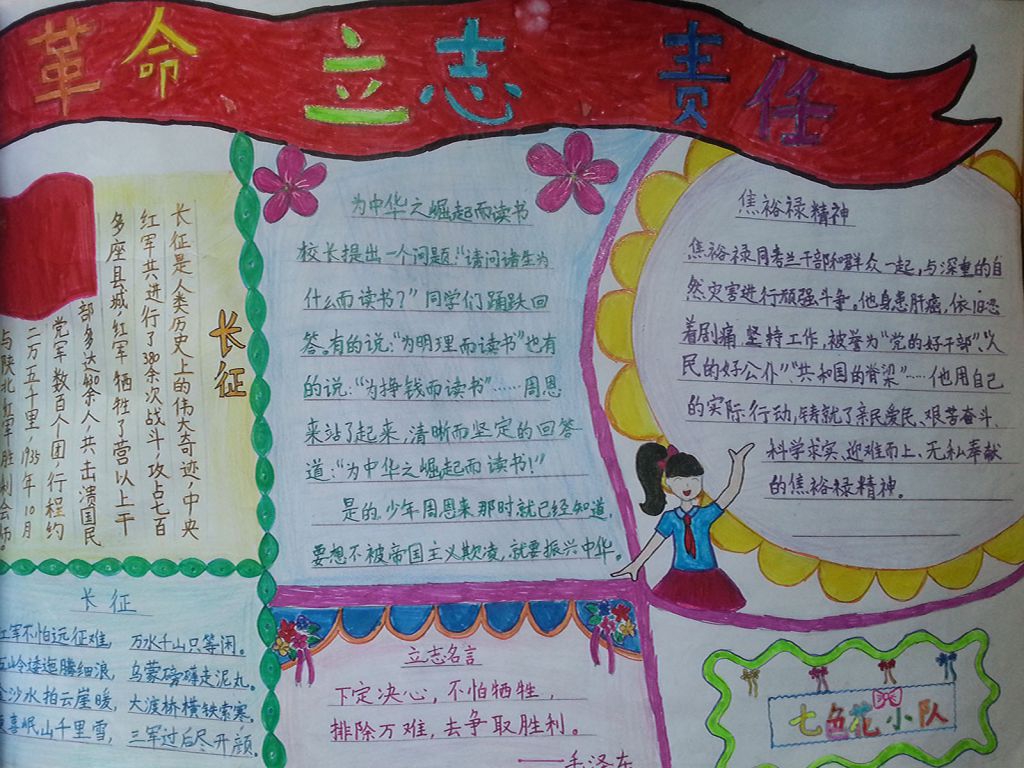 革命 立志 责任
长征
长征是人类历史上的伟大奇迹,中央
红军共进行了380余次战斗,攻占七百
多座县城,红军牺牲了营以上干
部多达430余人,共击溃国民
党军数百人团,行程约
二万五千里,1935年10月
与陕北红军胜利会师。
长征
军不怕远征难,万水千山只等闲。
岭逶迤腾细浪,乌蒙磅礴走泥丸。
沙水拍云崖暖,大渡桥横铁索寒。
喜岷山千里雪,三军过后尽开颜。
为中华之崛起而读书
校长提出一个问题:“请问诸生为
什么而读书?”同学们踊跃回
答。有的说:“为明理而读书”也有
的说:“为挣钱而读书”……周恩
来站了起来,清晰而坚定的回答
道:“为中华之崛起而读书!”
是的,少年周恩来那时就已经知道,
要想不被帝国主义欺凌,就要振兴中华。
立志名言
下定决心,不怕牺牲,
排除万难,去争取胜利。
——毛泽东
焦裕禄精神
焦裕禄同考兰干部和群众一起,与深重的自
然灾害进行顽强斗争。他身患肝癌,依旧忍
着剧痛,坚持工作,被誉为“党的好干部”、“人
民的好公仆”、“共和国的脊梁”……他用自己
的实际行动,铸就了亲民爱民、艰苦奋斗、
科学求实、迎难而上、无私奉献
的焦裕禄精神。
七色花小队